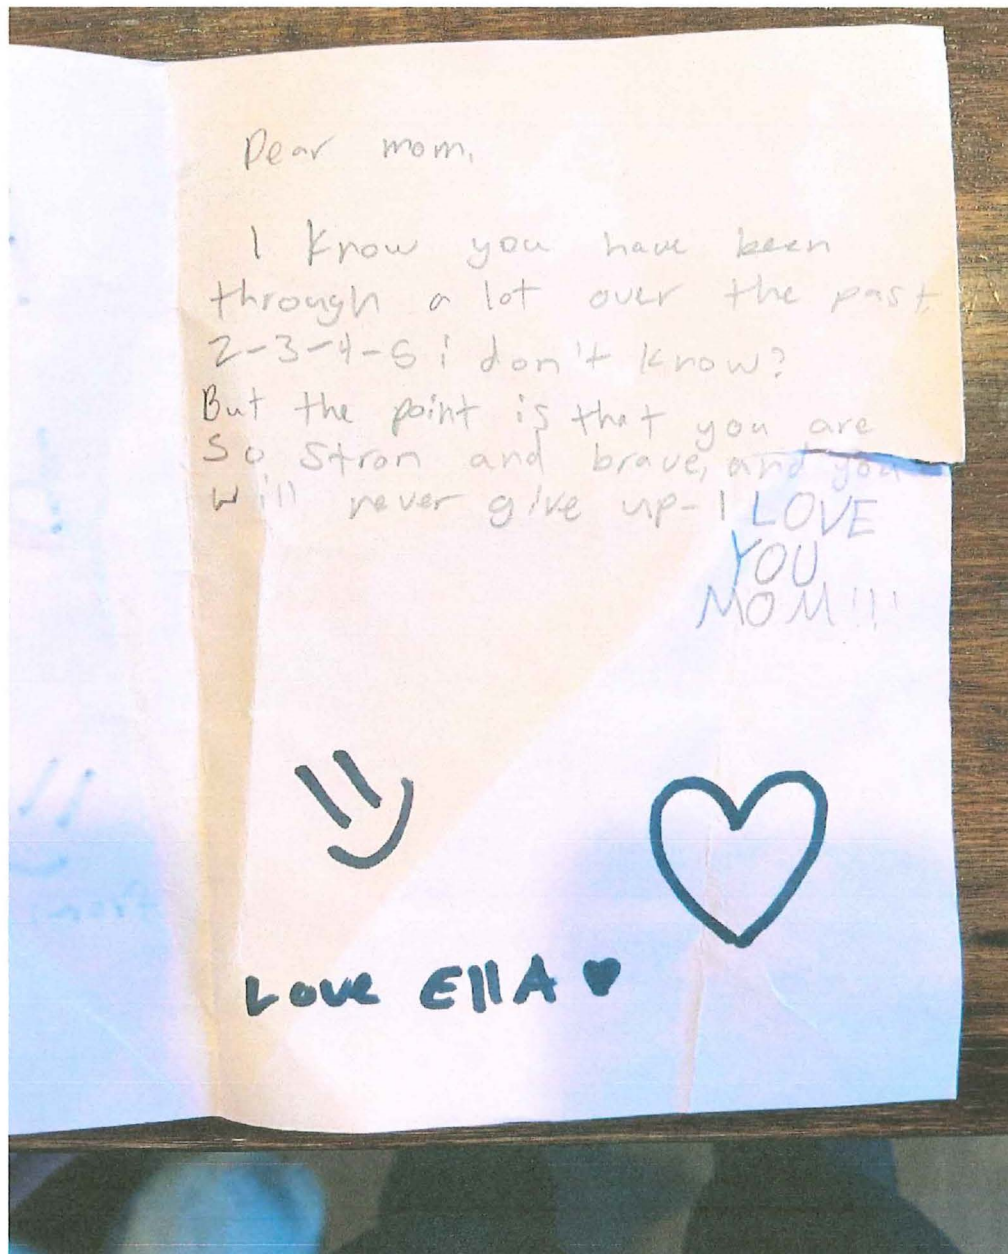 Dear mom,
I know you have been
through a lot over the past
2-3-4-5 i don't know?
But the point is that you are
So stron and brave, and you
will never give up- I LOVE
YOU
MOM!!!
Love EllA ♥